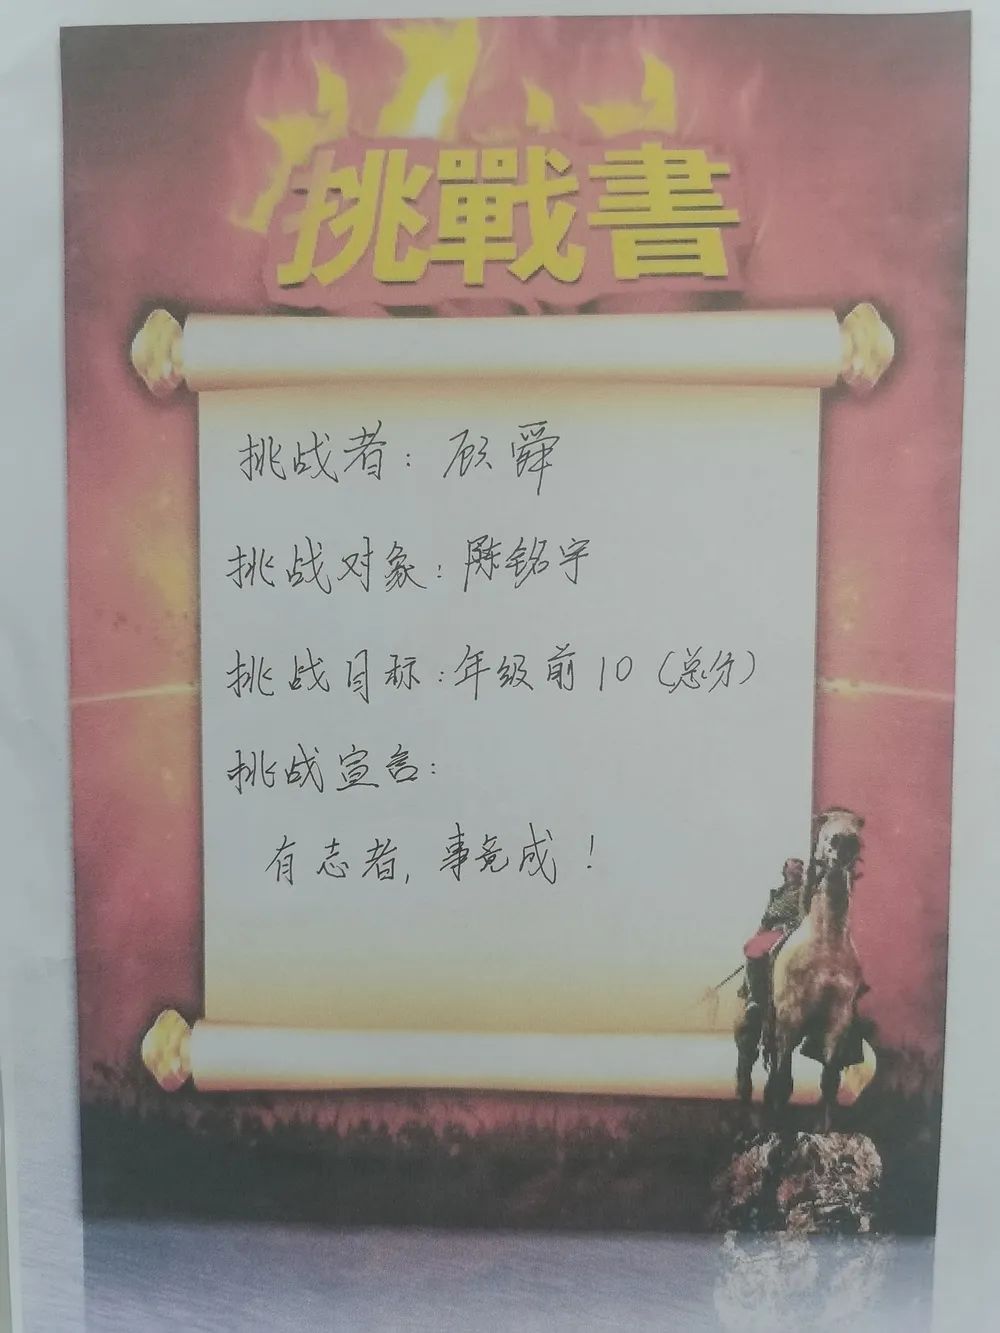 挑戰書
挑战者：顾舜
挑战对象：陈铭宇
挑战目标：年级前10（总分）
挑战宣言：
有志者，事竟成！